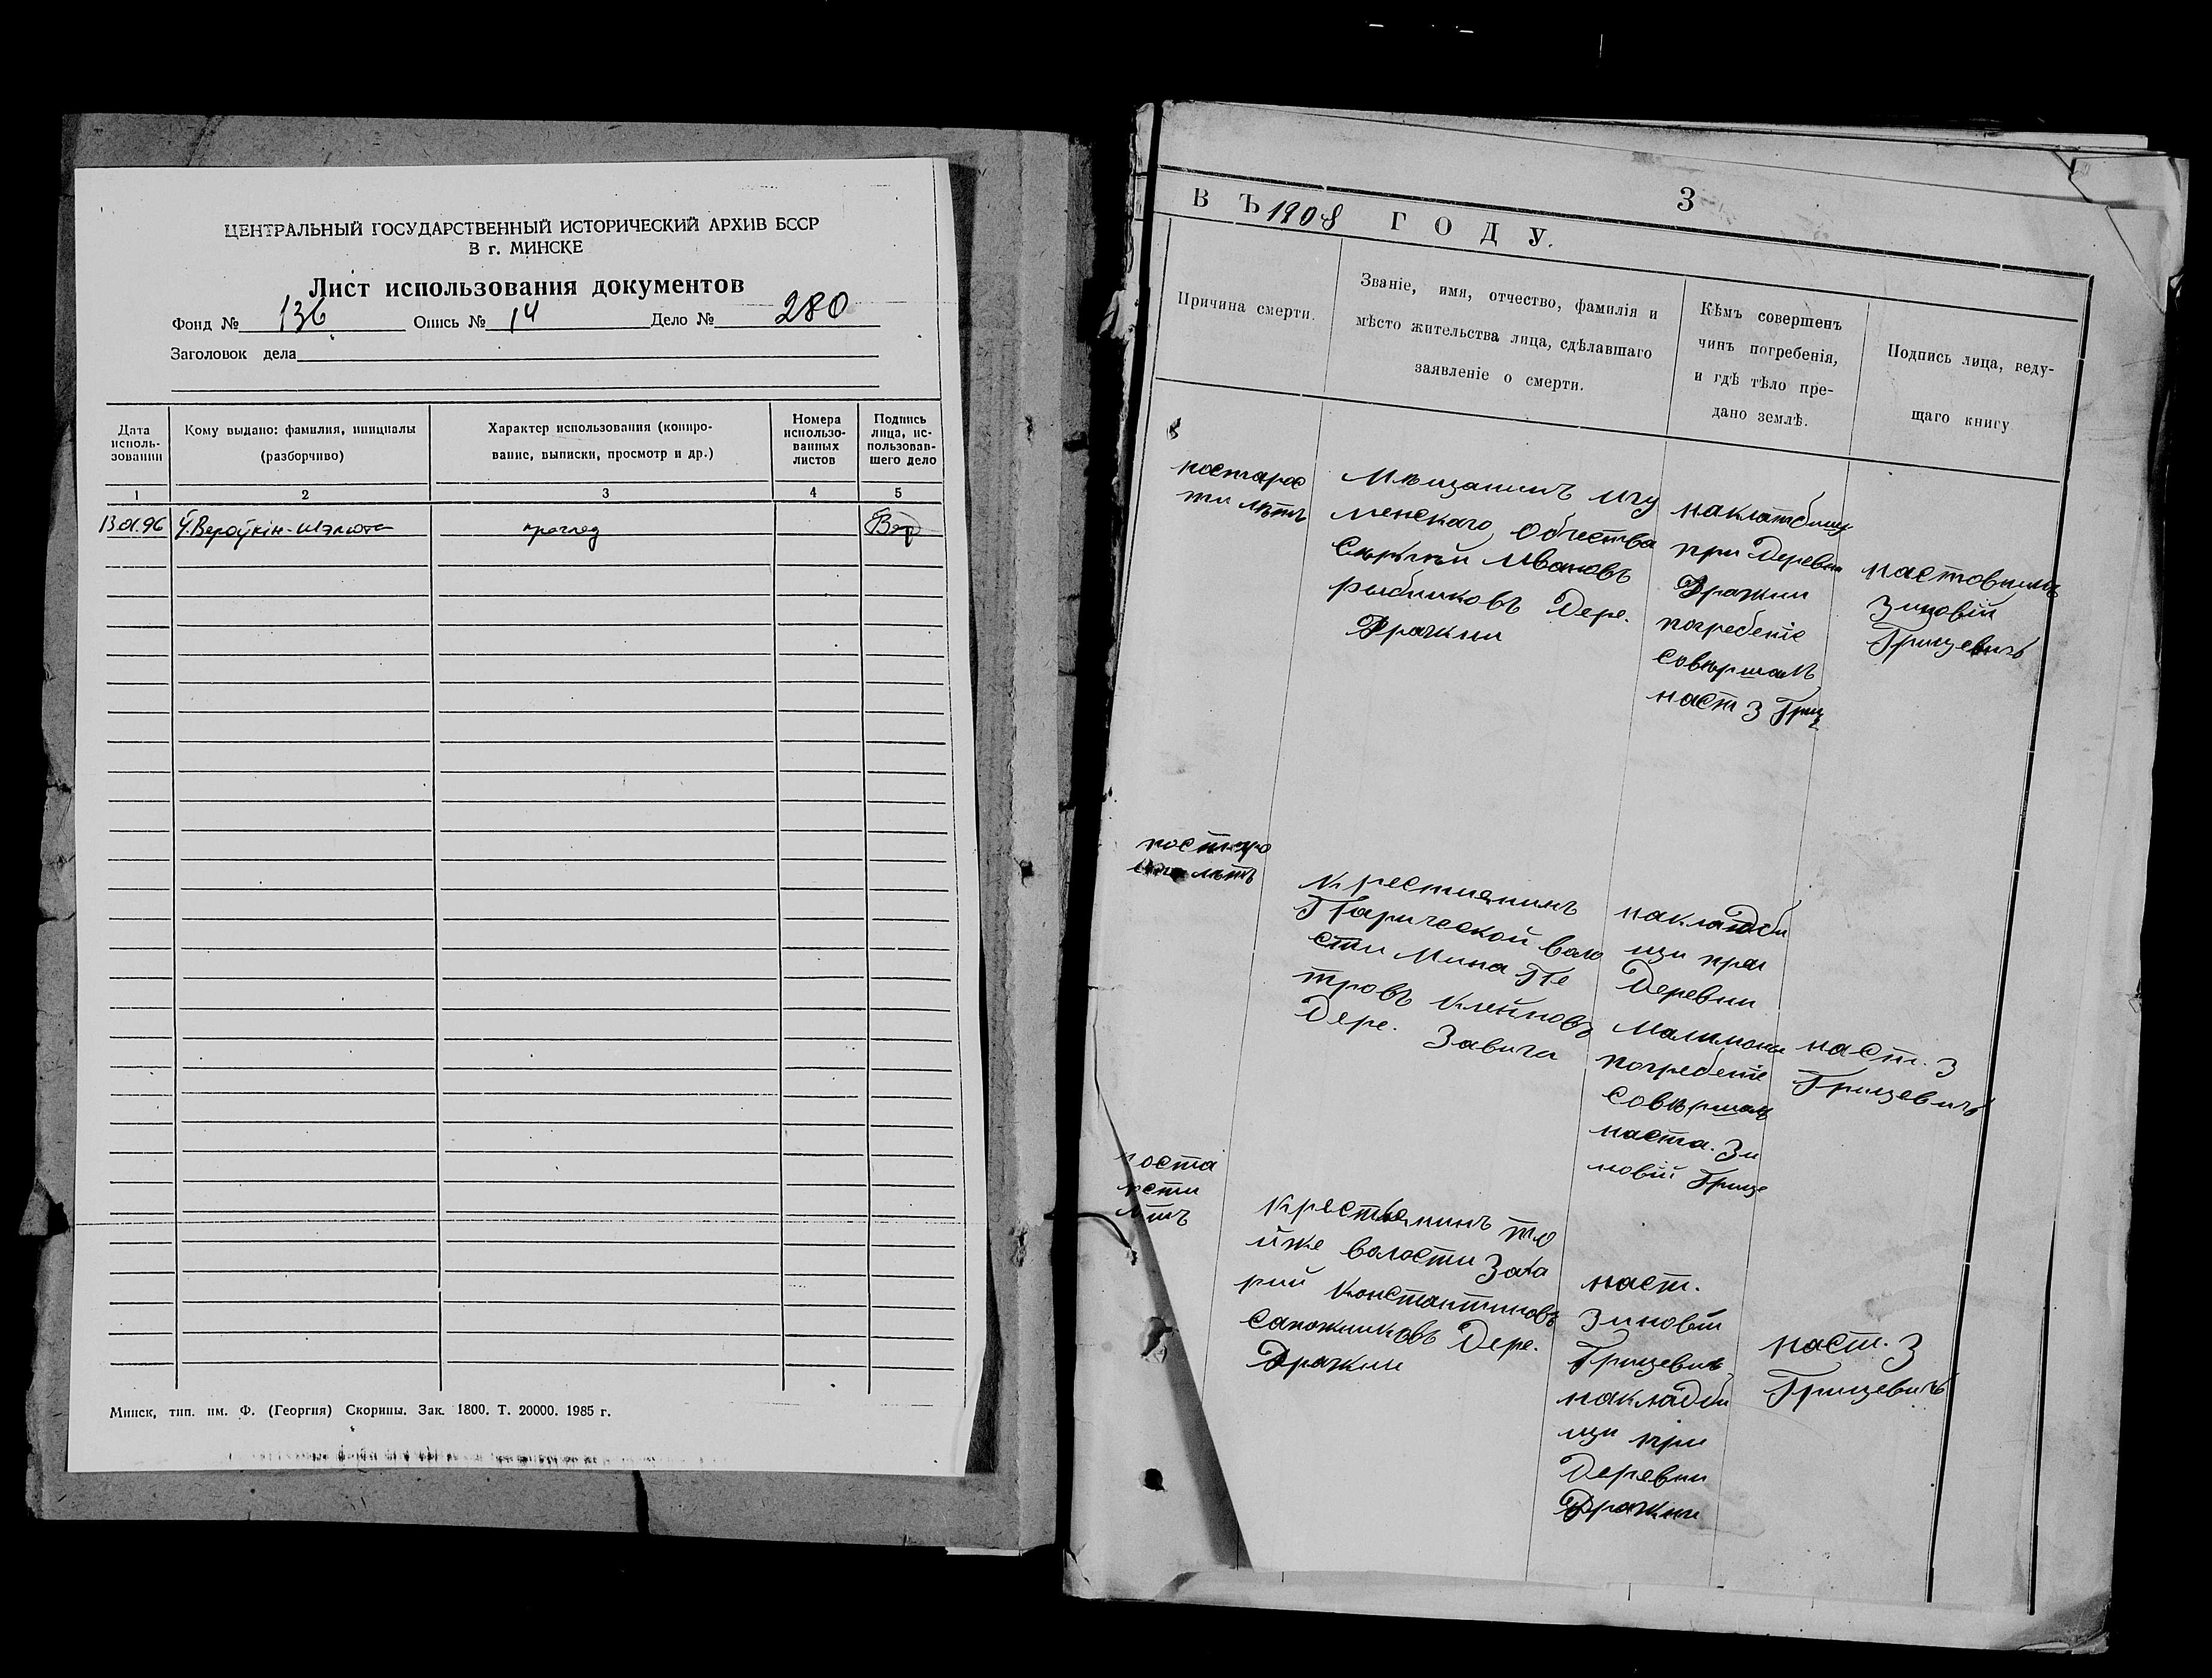 ЦЕНТРАЛЬНЫЙ ГОСУДАРСТВЕННЫЙ ИСТОРИЧЕСКИЙ АРХИВ БССР
В г. МИНСКЕ
Лист использования документов
Фонд № 136 Опись № 14 Дело № 280
Заголовок дела
Дата исполь-зовании
Кому выдано: фамилия, инициалы
(разборчиво)
Характер использования (копиро-
вание, выписки, просмотр и др.)
Номера
использо-
ванных
листов
Подпись
лица, ис-
пользовав-
шего дело
1 2 3 4 5
13.01.96 Ў. Вероўкін-Шэлюта прагляд
Минск, тип. им. Ф. (Георгия) Скорины. Зак. 1800. Т. 20000. 1985 г.
3
ВЪ 1908 ГОДУ.
Причина смерти.
Званіе, имя, отчество, фамилія и
мѣсто жительства лица, сдѣлавшаго
заявленіе о смерти.
Кѣмъ совершенъ
чинъ погребенія,
и гдѣ тѣло пре-
дано землѣ.
Подпись лица, веду-
щаго книгу
постарос
ти лѣтъ
Мѣщанинъ Игу
менскаго Обчества
Ивановъ
рыбниковъ Дере.
Дражни
накладбищу
при Деревни
Дражни
погребеніе
совершалъ
наст З Гриц
наставникъ
Зиновій
Грицевичъ
постаро
лѣтъ
Крестиянинъ
воло
сти Мина Пе
тровъ Клейновъ
Дере. Завича
накладби
щи при
Деревни
погребеніе
совершал
наста. Зи
новій Грице
наст. З
Грицевичъ
поста
рсти
лѣтъ
Крестьянинъ то
йже волости Заха
рий Константиновъ
Сапожниковъ Дере.
Дражни
наст.
Зиновій
Грицевич
накладби
щи при
Деревни
Дражни
наст. З
Грицевичъ